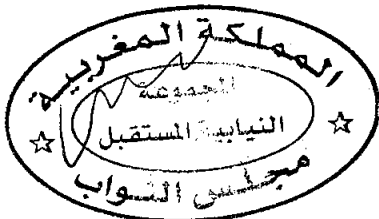 المملكة المغربية
المجموعة
النيابية المستقبل
مجلس النواب